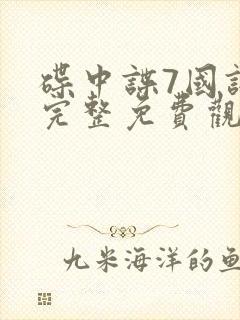 碟中諜7國語
完整免費觀
九米海洋的魚